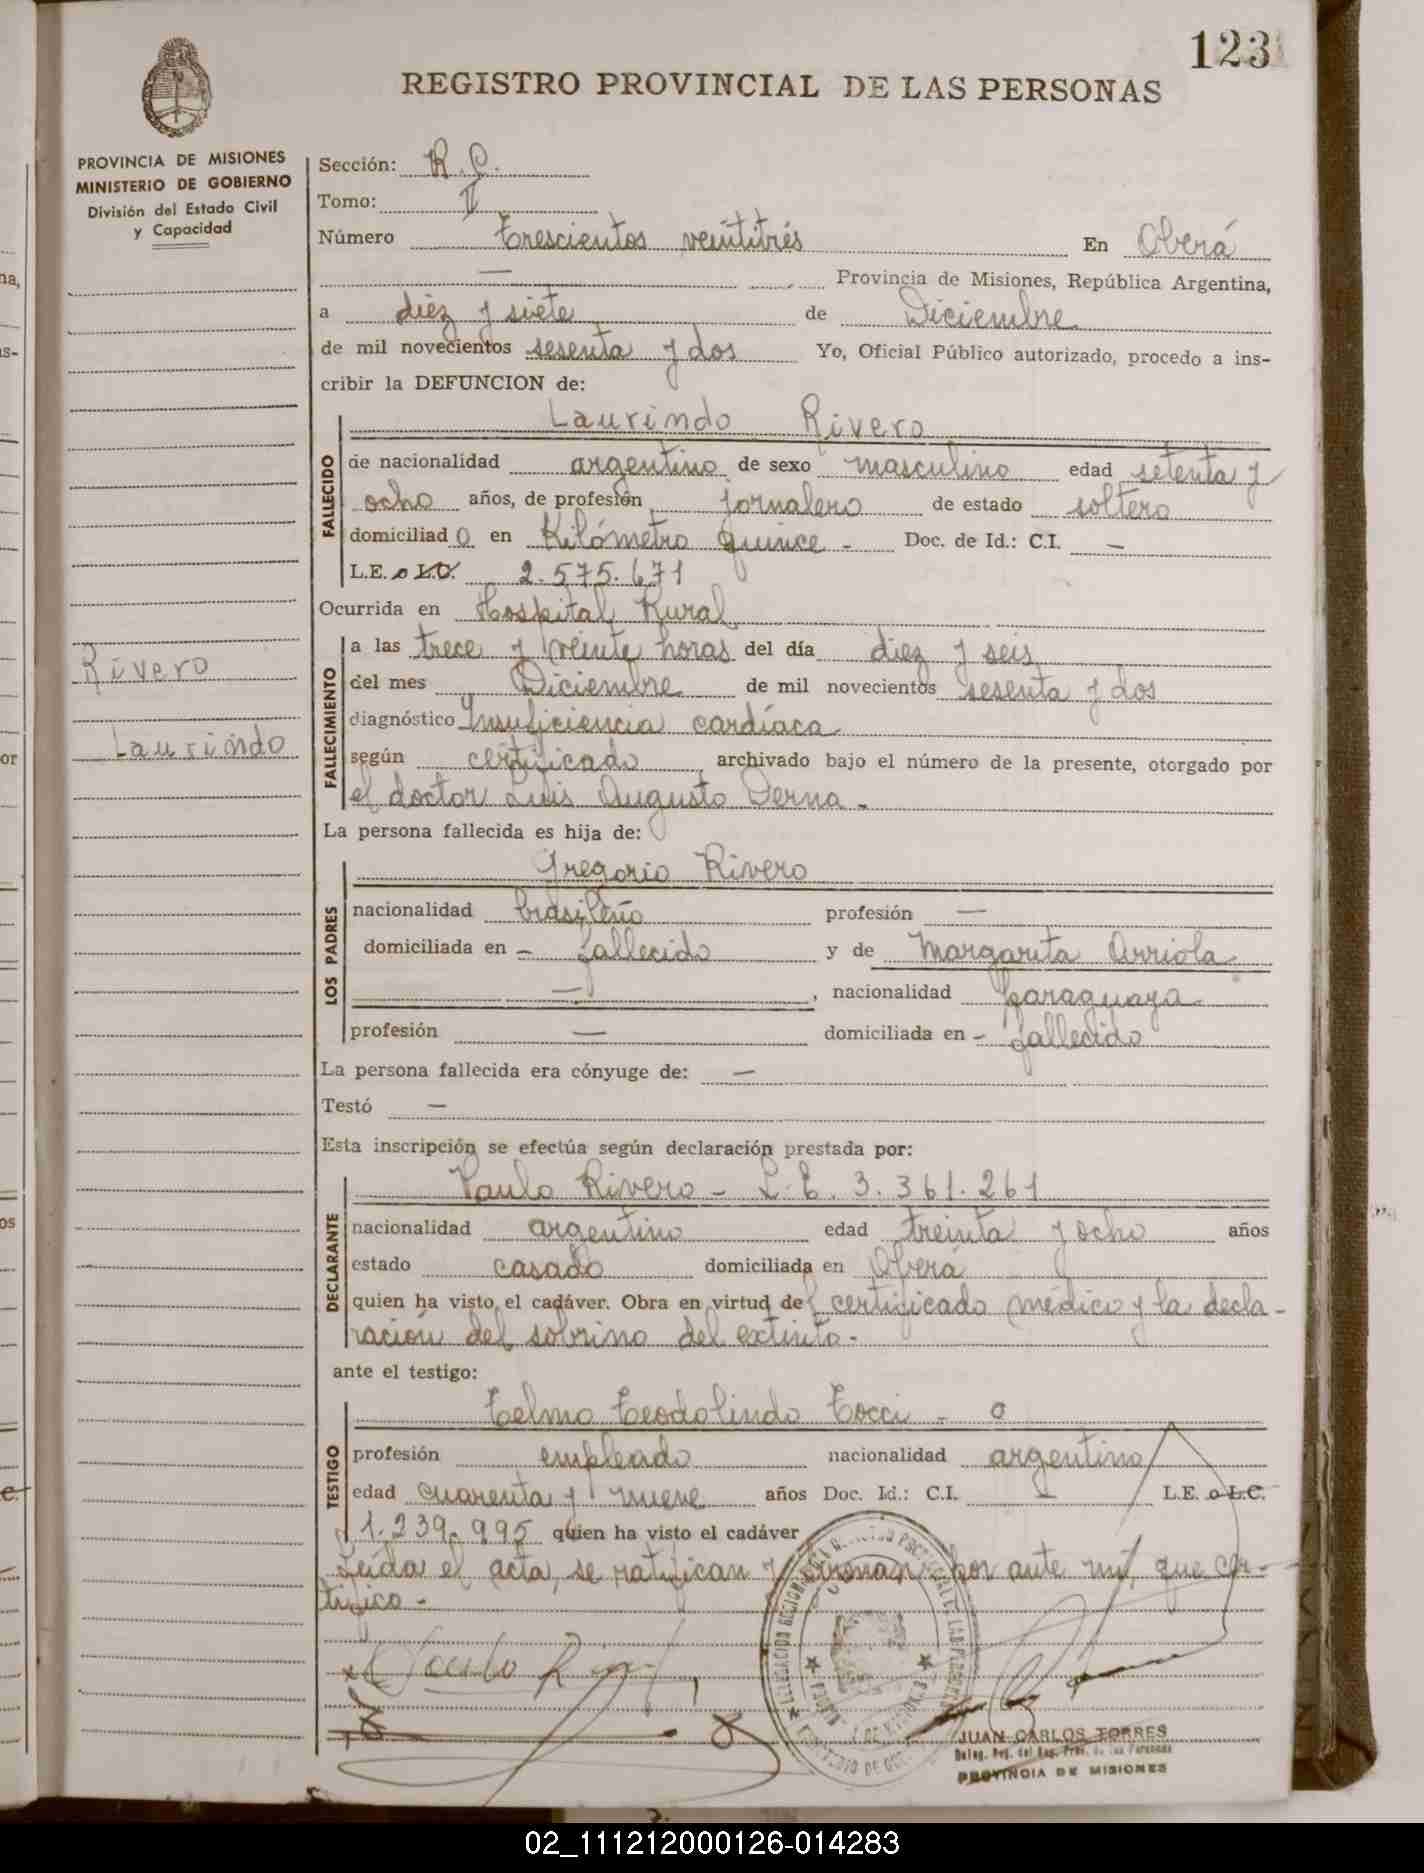 123
REGISTRO PROVINCIAL DE LAS PERSONAS
PROVINCIA DE MISIONES
MINISTERIO DE GOBIERNO
División del Estado Civil
y Capacidad
Sección: R.C.
Tomo: II
Número Trescientos veintitrés En Oberá
— Provincia de Misiones, República Argentina,
a diez y siete de Diciembre
de mil novecientos sesenta y dos Yo, Oficial Público autorizado, procedo a ins-
cribir la DEFUNCION de:
Laurindo Rivero
FALLECIDO
de nacionalidad argentino de sexo masculino edad setenta y
ocho años, de profesión jornalero de estado soltero
domiciliad o en Kilómetro quince - Doc. de Id.: C.I. —
L.E. o L.C. 2.575.671
Ocurrida en Hospital Rural
Rivero
Laurindo
FALLECIMIENTO
a las trece y veinte horas del día diez y seis
del mes Diciembre de mil novecientos sesenta y dos
diagnóstico Insuficiencia cardíaca
según certificado, archivado bajo el número de la presente, otorgado por
el doctor Luis Augusto Derna -
La persona fallecida es hija de:
Gregorio Rivero
LOS PADRES
nacionalidad brasileño profesión —
domiciliada en - fallecido y de Margarita Arriola
—, nacionalidad paraguaya
profesión — domiciliada en - fallecido
La persona fallecida era cónyuge de: —
Testó —
Esta inscripción se efectúa según declaración prestada por:
Paulo Rivero - L.E. 3.361.261
DECLARANTE
nacionalidad argentino edad treinta y ocho años
estado casado domiciliada en Oberá
quien ha visto el cadáver. Obra en virtud del certificado médico y la decla-
ración del sobrino del extinto.
ante el testigo:
Telmo Teodolindo Tocci -
TESTIGO
profesión empleado nacionalidad argentino
edad cuarenta y nueve años Doc. Id.: C.I. — L.E. o L.C.
1.239.995 quien ha visto el cadáver
Leída el acta, se ratifican y firman por ante mí, que cer-
tifico -
JUAN CARLOS TORRES
Deleg. Reg. del Reg. Prov. de las Personas
PROVINCIA DE MISIONES
02_111212000126-014283